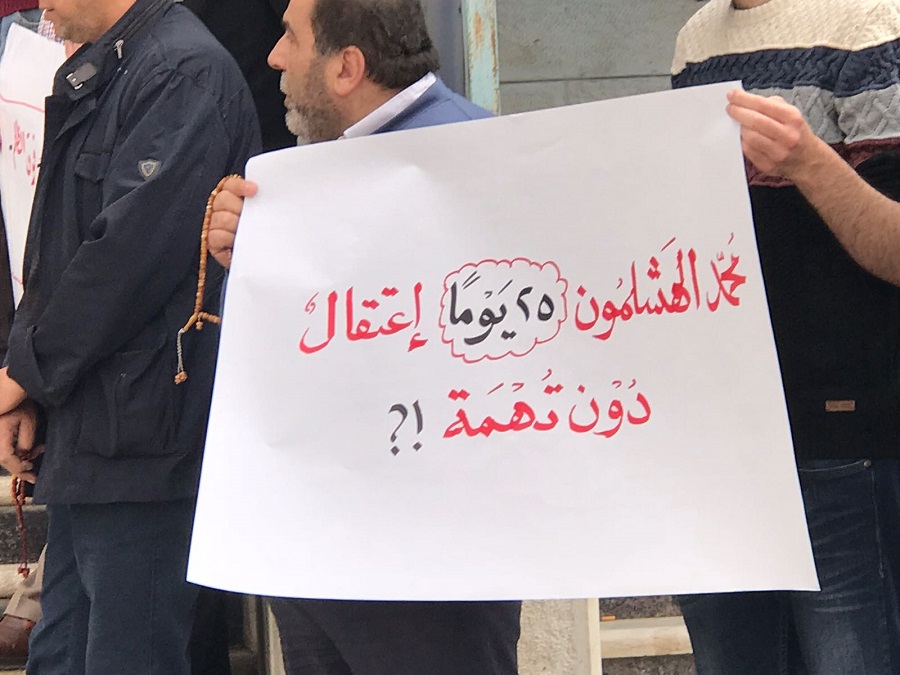 مُحمّد الهَشلمُون ٢٥ يَوْمًا إعتقالٌ
دُوْن تُهْمَة !؟